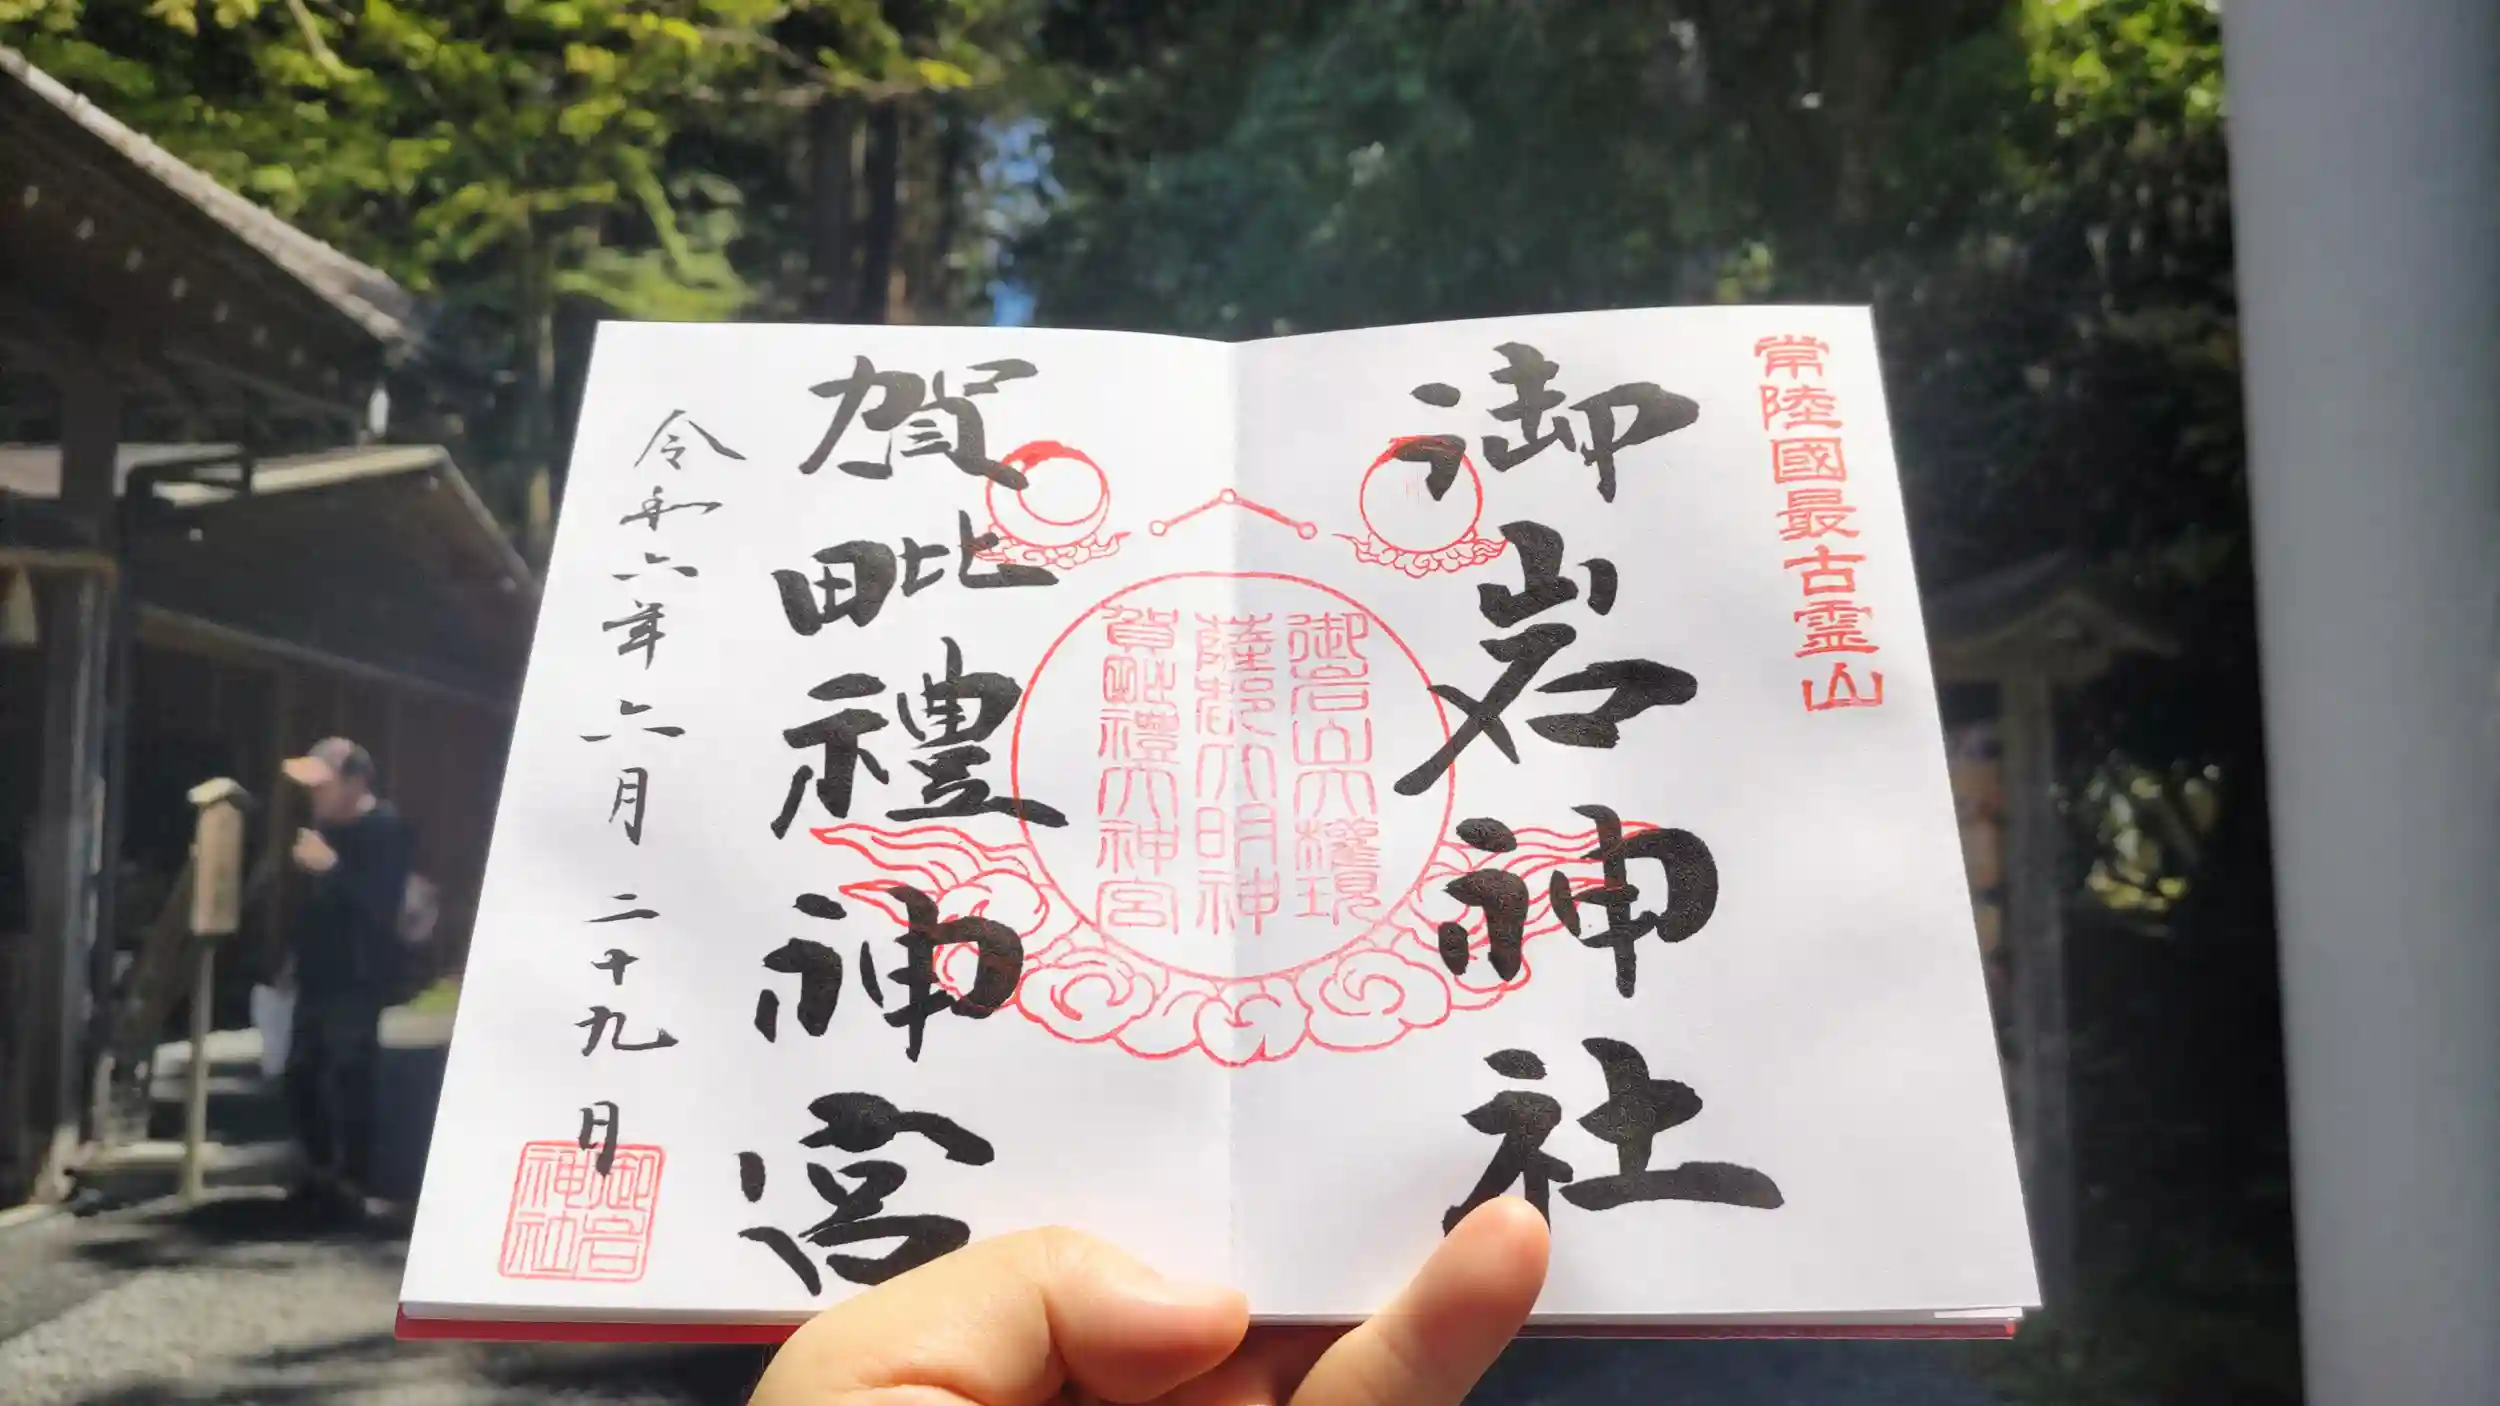 常陸國最古霊山
御岩神社
御岩山大權現
薩都大明神
賀毗禮大神宮
賀毗禮神宮
令和六年六月二十九日
御岩
神社